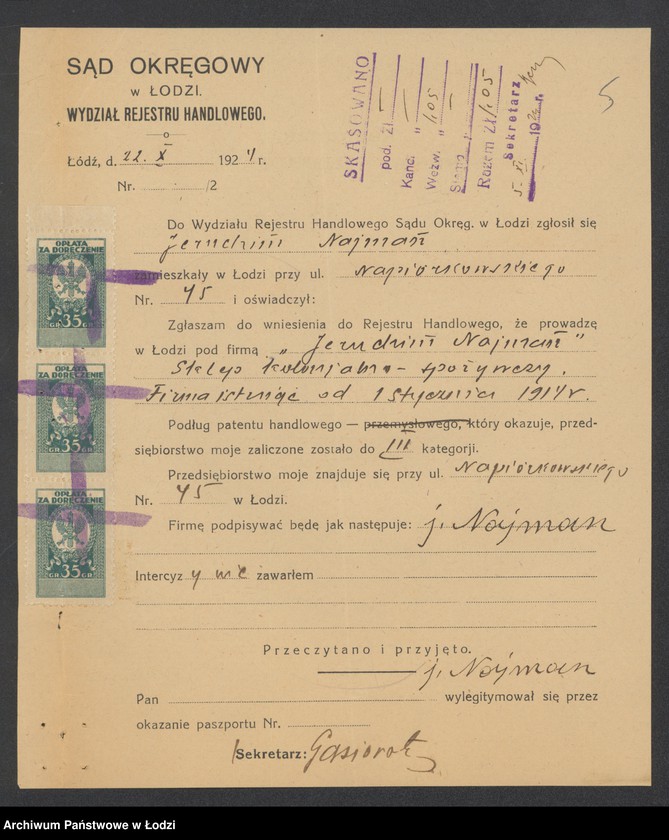 SĄD OKRĘGOWY
W ŁODZI.
WYDZIAŁ REJESTRU HANDLOWEGO.
Łódź, d. 22. X 1924 r.
Nr. /2
SKASOWANO
pod. Zł —
Kanc. " —
Wezw. " 1.05
Razem Zł 1.05
Sekretarz
5. XI. 1924 r.
5
Do Wydziału Rejestru Handlowego Sądu Okręg. w Łodzi zgłosił się
Jeruchim Najman
zamieszkały w Łodzi przy ul. Napiórkowskiego
Nr. 45 i oświadczył:
Zgłaszam do wniesienia do Rejestru Handlowego, że prowadzę
w Łodzi pod firmą „Jeruchim Najman”
Sklep kolonjalno-spożywczy.
Firma istnieje od 1 stycznia 1914 r.
Podług patentu handlowego — przemysłowego, który okazuje, przed-
siębiorstwo moje zaliczone zostało do III kategorji.
Przedsiębiorstwo moje znajduje się przy ul. Napiórkowskiego
Nr. 45 w Łodzi.
Firmę podpisywać będę jak następuje: J. Najman
Intercyzy nie zawarłem
Przeczytano i przyjęto.
J. Najman
Pan wylegitymował się przez
okazanie paszportu Nr.
Sekretarz:
OPŁATA
ZA DORĘCZENIE
GR 35 GR
OPŁATA
ZA DORĘCZENIE
GR 35 GR
OPŁATA
ZA DORĘCZENIE
GR 35 GR
Archiwum Państwowe w Łodzi